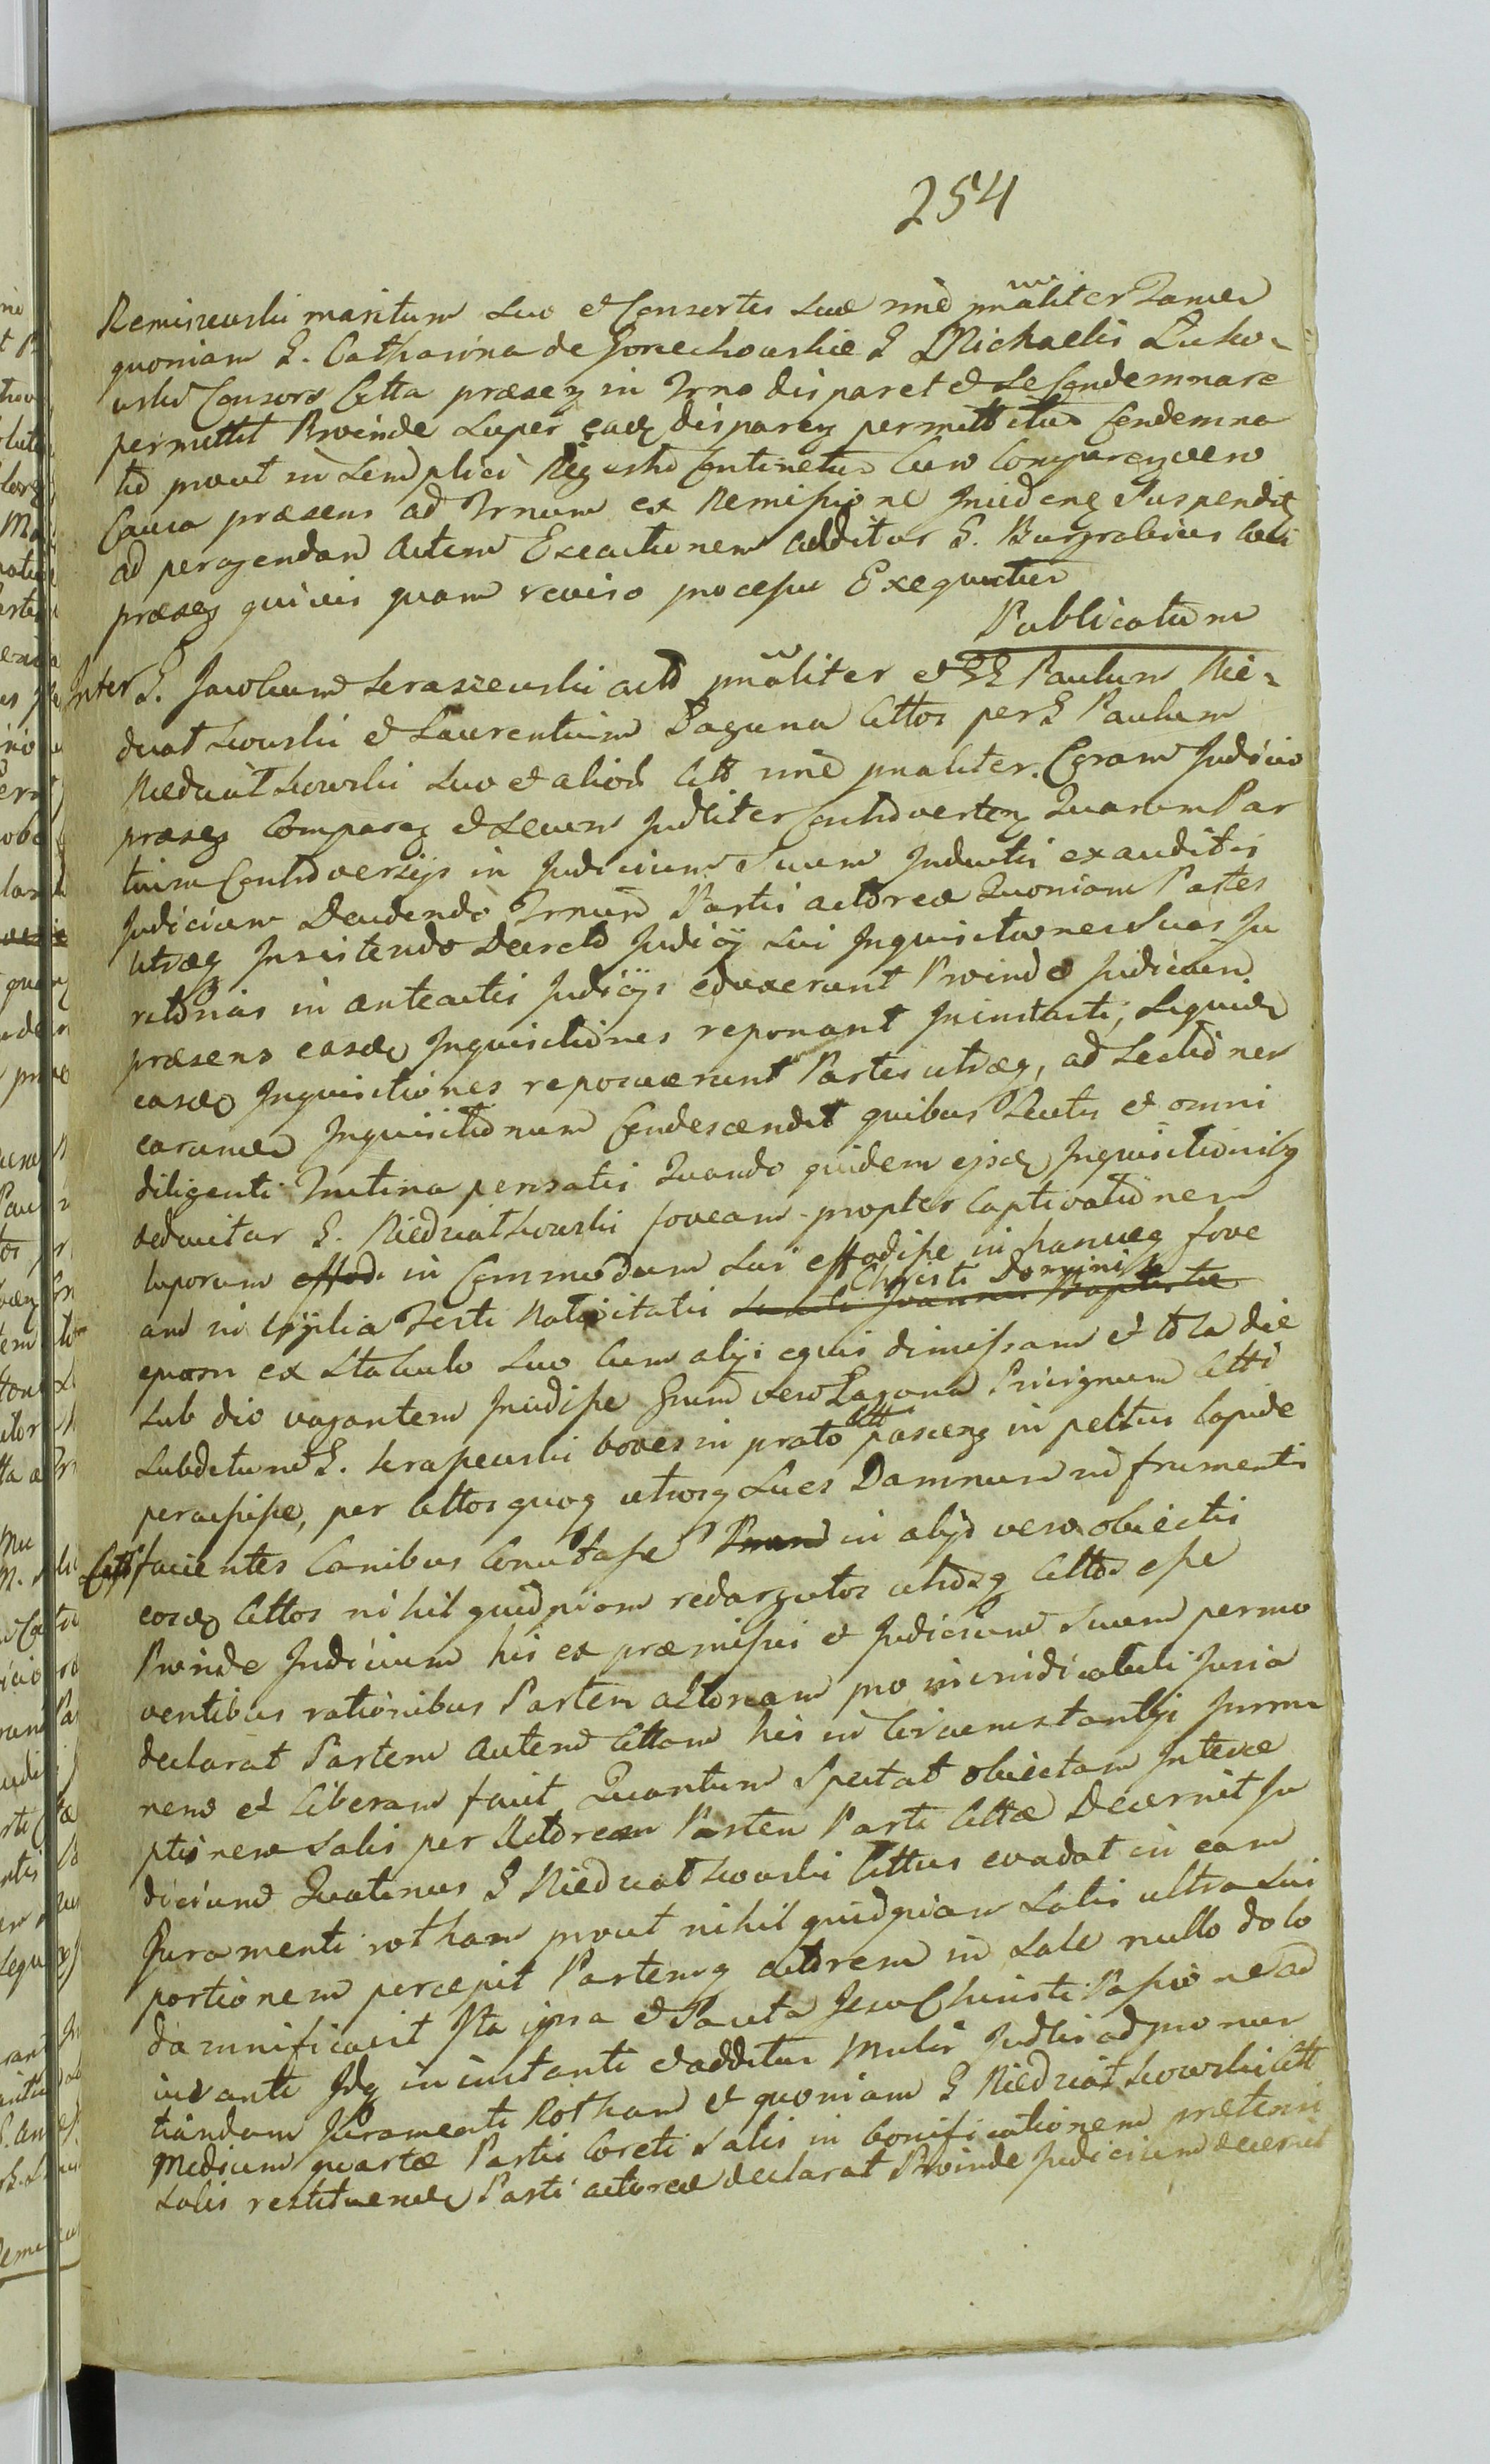 254
Remiszewski maritum suo et Consortis suæ nñe pnaliter Tamen
quoniam G. Catharina de Gorzechowskie G Michaelis Zuko-
wski Consors Citta præsez in Trno disparet et se Condemnare
permittit Proinde super eadz disparez permittitur Condemna
tio prout in simplici Regestro Continetur Cum Comparez vero
Causa præsens ad Trnum ex Remissione Incidenz Suspenditz
ad peragendam autem Executionem additur G. Burgrabius
præsez quivis quam reviso processu Exequetur
Publicatum
Inter G. Jacobum Seraszewski act pnaliter et GG Paulum Nie-
dwatkowski et Laurentium Paguna Cittos per G Paulum
Niedwiatkowski suo et alior Citt nñe pnaliter. Coram Judicio
præsez Comparez et secum Judliter Controvertez Quarum Par
tium Controversijs in Judicium Suum Inductis exauditis
Judicium Decidendo Trnum Partis actoreæ Quoniam Partes
utræq Insistendo Decreto Judicÿ sui Inquisitiones Suas Ju
ratorias in anteactis Judicijs eduxerunt Proinde Judicium
præsens easdez Inquisitiones reponant Ininstanti, Siquidz
easdez Inquisitiones reposuerunt Partes utræq, ad Lectionem
earumdz Inquisitionum Condescendit quibus Lectis et omni
diligenti Trutina pensatis Quando quidem ejsdz Inquisitionibz
deducitur G. Niedzwiatkowski foveam propter Captivationem
luporum effodi in Commodum sui effodisse in hancq fove
am in Vigilia Festi Nativitatis Sancti Joannis Baptistæ Christi Domini
equam ex Stabulo suo Cum alijs equis dimissam et tota die
sub dio vagantem Incidisse Grum vero Laguna Privignum Citti
subditum G. Seraszewski boves in prato Citt pascenz in pectus lapide
percussisse, per Cittos quoq utrosq Sues Damnum in frumentis
Citt facientes Canibus Concitasse in alijs vero obiectis
eosdz Cittos nihil quidpiam redargutos utrosq Cittos esse
Proinde Judicium his ex præmissis et Judicium Suum permo
ventibus rationibus Partem actoream pro invindicabili Juria
declarat Partem autem Cittam his in Circumstantijs Immu
nem et liberam facit Quantum Spectat obiectam Interce
ptionem Salis per Actoream Partem Parti Cittæ Decernit Ju
dicium Quatenus G Niedzwiatkowski Cittus evadat in eam
Juramenti rotham prout nihil quidpiam Salis ultra sui
portionem percepit Partemq actorem in Sale nullo dolo
damnificavit Ita ipsa et Sancta Jesu Christi Passione ad
iuvante Idq in instanti et additur Mnlis Judlis ad pronun
tiandam Juramenti Rotham et quoniam G Niedzwiatkowski Citt
Medium quartæ Partis Coreti Salis in bonificationem prætensi
Salis restituendz Parti actoreæ declarat Proinde Judicium decernit